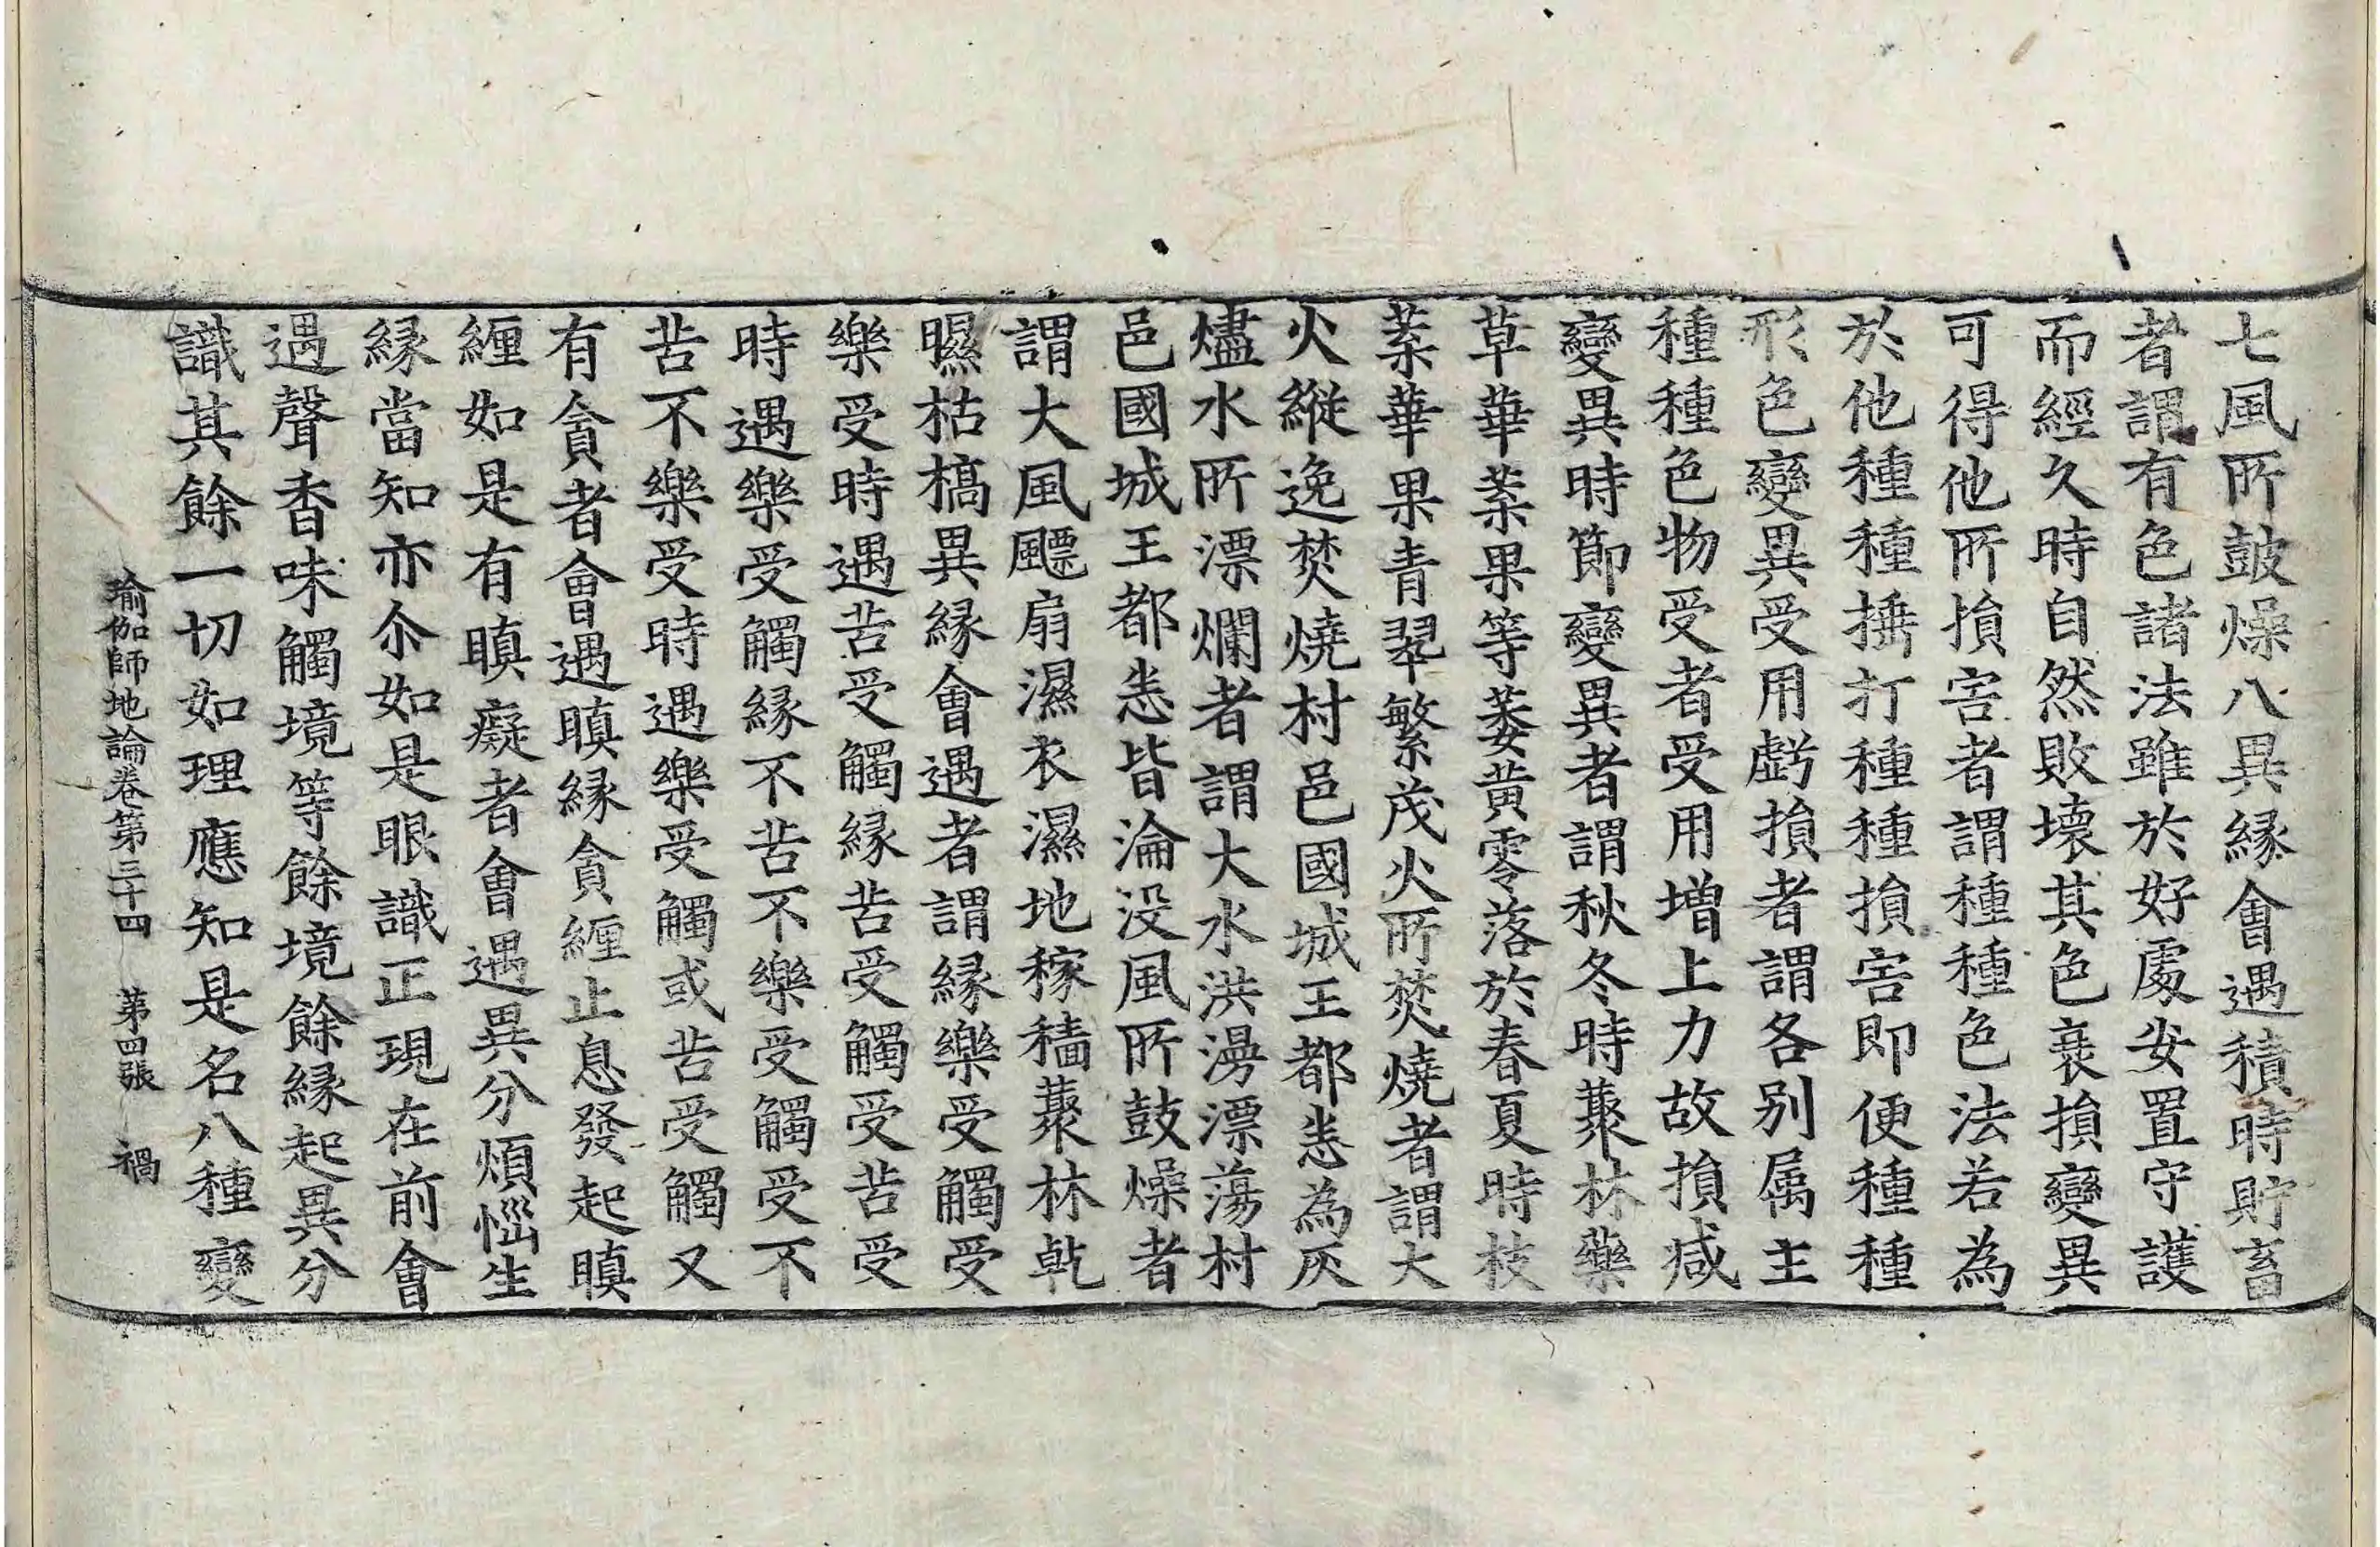 七風所皷燥八異緣會遇積時貯畜
者謂有色諸法雖於好處安置守護
而經久時自然敗壞其色衰損變異
可得他所損害者謂種種色法若為
於他種種捶打種種損害即便種種
形色變異受用虧損者謂各別属主
種種色物受者受用增上力故損减
變異時節變異者謂秋冬時藂林藥
草華葉果等萎黃零落於春夏時枝
葉華果青翠繁茂火所焚燒者謂大
火縱逸焚燒村邑國城王都悉為灰
燼水所漂爛者謂大水洪漫漂蕩村
邑國城王都悉皆淪没風所鼓燥者
謂大風飄扇濕衣濕地稼穡藂林乾
曝枯槁異緣會遇者謂緣樂受觸受
樂受時遇苦受觸緣苦受觸受苦受
時遇樂受觸緣不苦不樂受觸受不
苦不樂受時遇樂受觸或苦受觸又
有貪者會遇瞋緣貪纏止息發起瞋
纏如是有瞋癡者會遇異分煩惱生
緣當知亦尒如是眼識正現在前會
遇聲香味觸境等餘境餘緣起異分
識其餘一切如理應知是名八種變
瑜伽師地論卷第三十四　第四張　禍